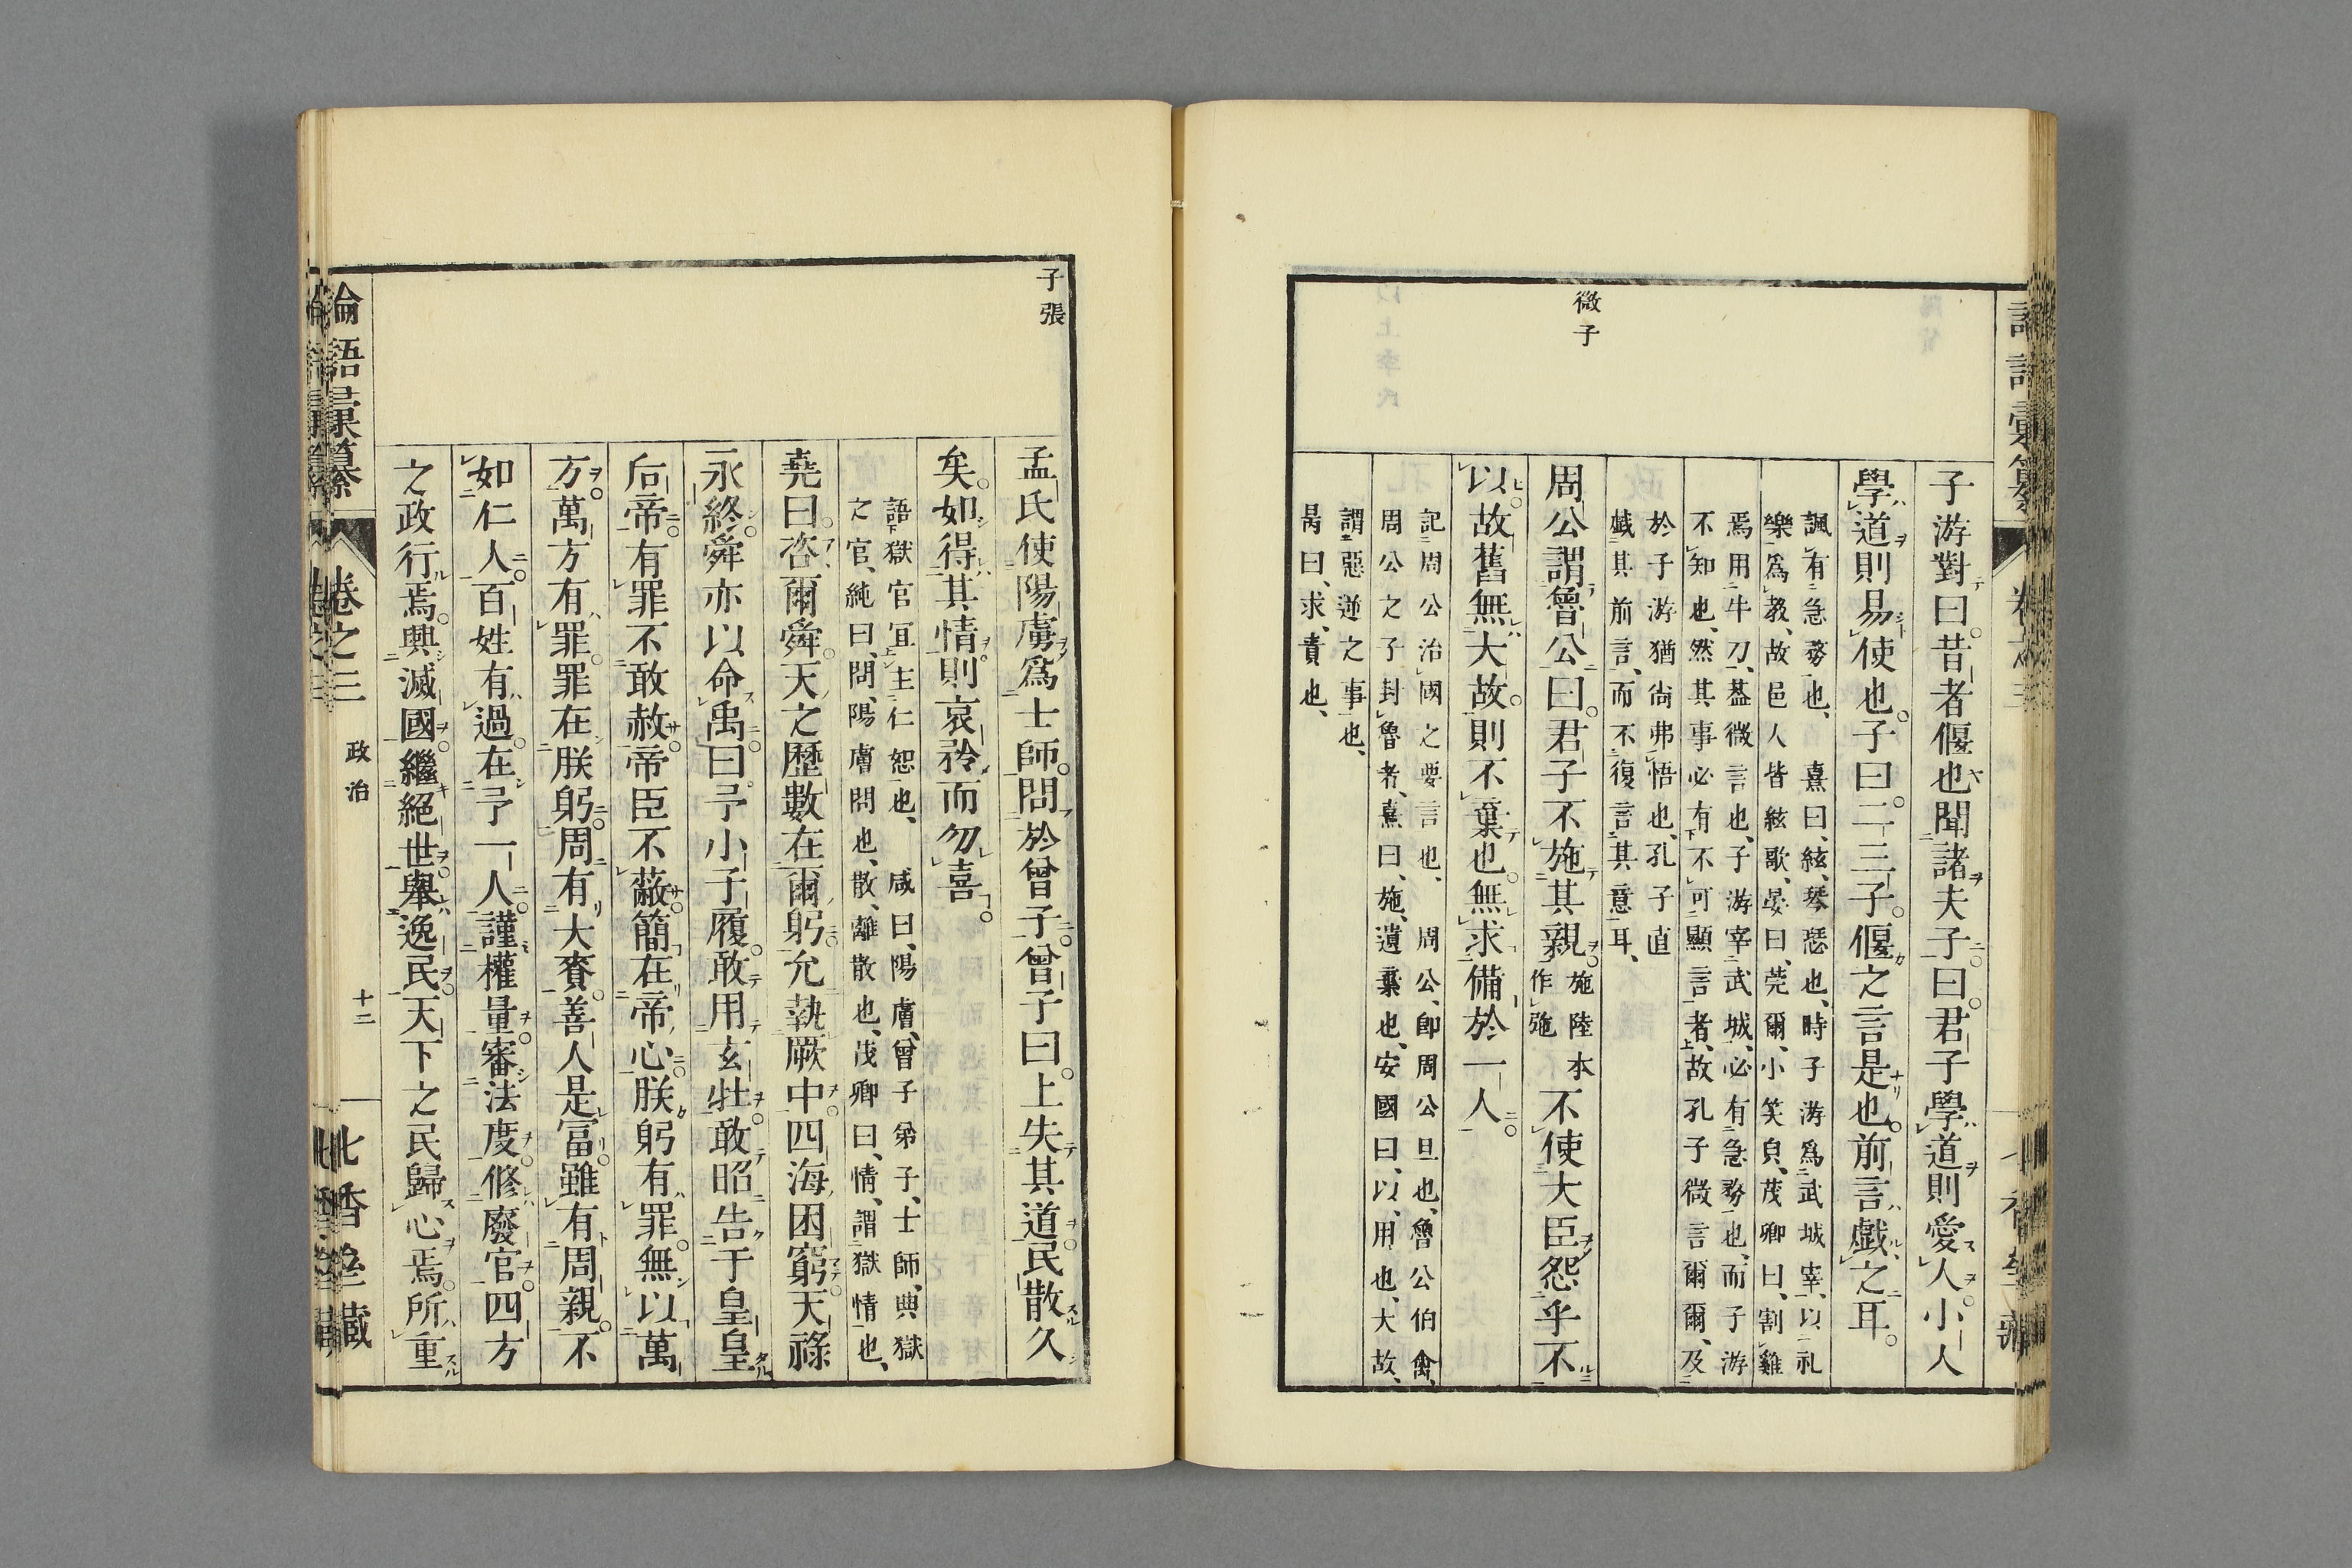 微子
子游對曰昔者偃也聞諸夫子曰君子學道則愛人小人
學道則易使也子曰二三子偃之言是也前言戯之耳
諷有急務也、熹曰、絃、琴瑟也、時子游爲武城宰、以礼
樂爲教、故邑人皆絃歌、晏曰、莞爾、小笑皃、茂卿曰、割雞
焉用牛刀、葢微言也、子游宰武城、必有急務也、而子游
不知也、然其事必有不可顯言者、故孔子微言爾爾、及
於子游猶尙弗悟也、孔子直
戯其前言、而不復言其意耳、
周公謂魯公曰君子不施其親施陸本作弛不使大臣怨乎不
以故舊無大故則不棄也無求備於一人
記周公治國之要言也、周公、卽周公旦也、魯公伯禽、
周公之子封魯者、熹曰、施、遺棄也、安國曰、以、用也、大故、
謂惡逆之事也、
昺曰、求、責也、
子張
孟氏使陽膚爲士師問於曾子曾子曰上失其道民散久
矣如得其情則哀矜而勿喜
語獄官宜主仁恕也、咸曰、陽膚、曾子弟子、士師、典獄
之官、純曰、問、陽膚問也、散、離散也、茂卿曰、情、謂獄情也、
堯曰咨爾舜天之歷數在爾躬允執厥中四海困窮天祿
永終舜亦以命禹曰予小子履敢用玄牡敢昭告于皇皇
后帝有罪不敢赦帝臣不蔽簡在帝心朕躬有罪無以萬
方萬方有罪罪在朕躬周有大賚善人是富雖有周親不
如仁人百姓有過在予一人謹權量審法度修廢官四方
之政行焉興滅國繼絕世舉逸民天下之民歸心焉所重
論語彙纂 卷之三 政治 十二 北香堂藏